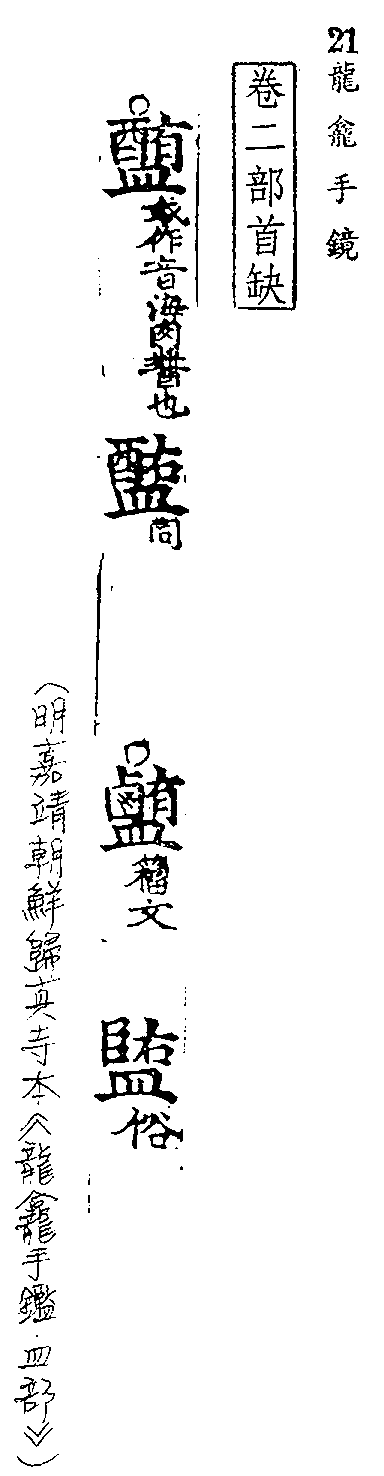 21龍龕手鏡
卷二部首缺
或作音海肉醬也 醢同 籀文 俗
(明嘉靖朝鮮歸真寺本《龍龕手鑑·皿部》)